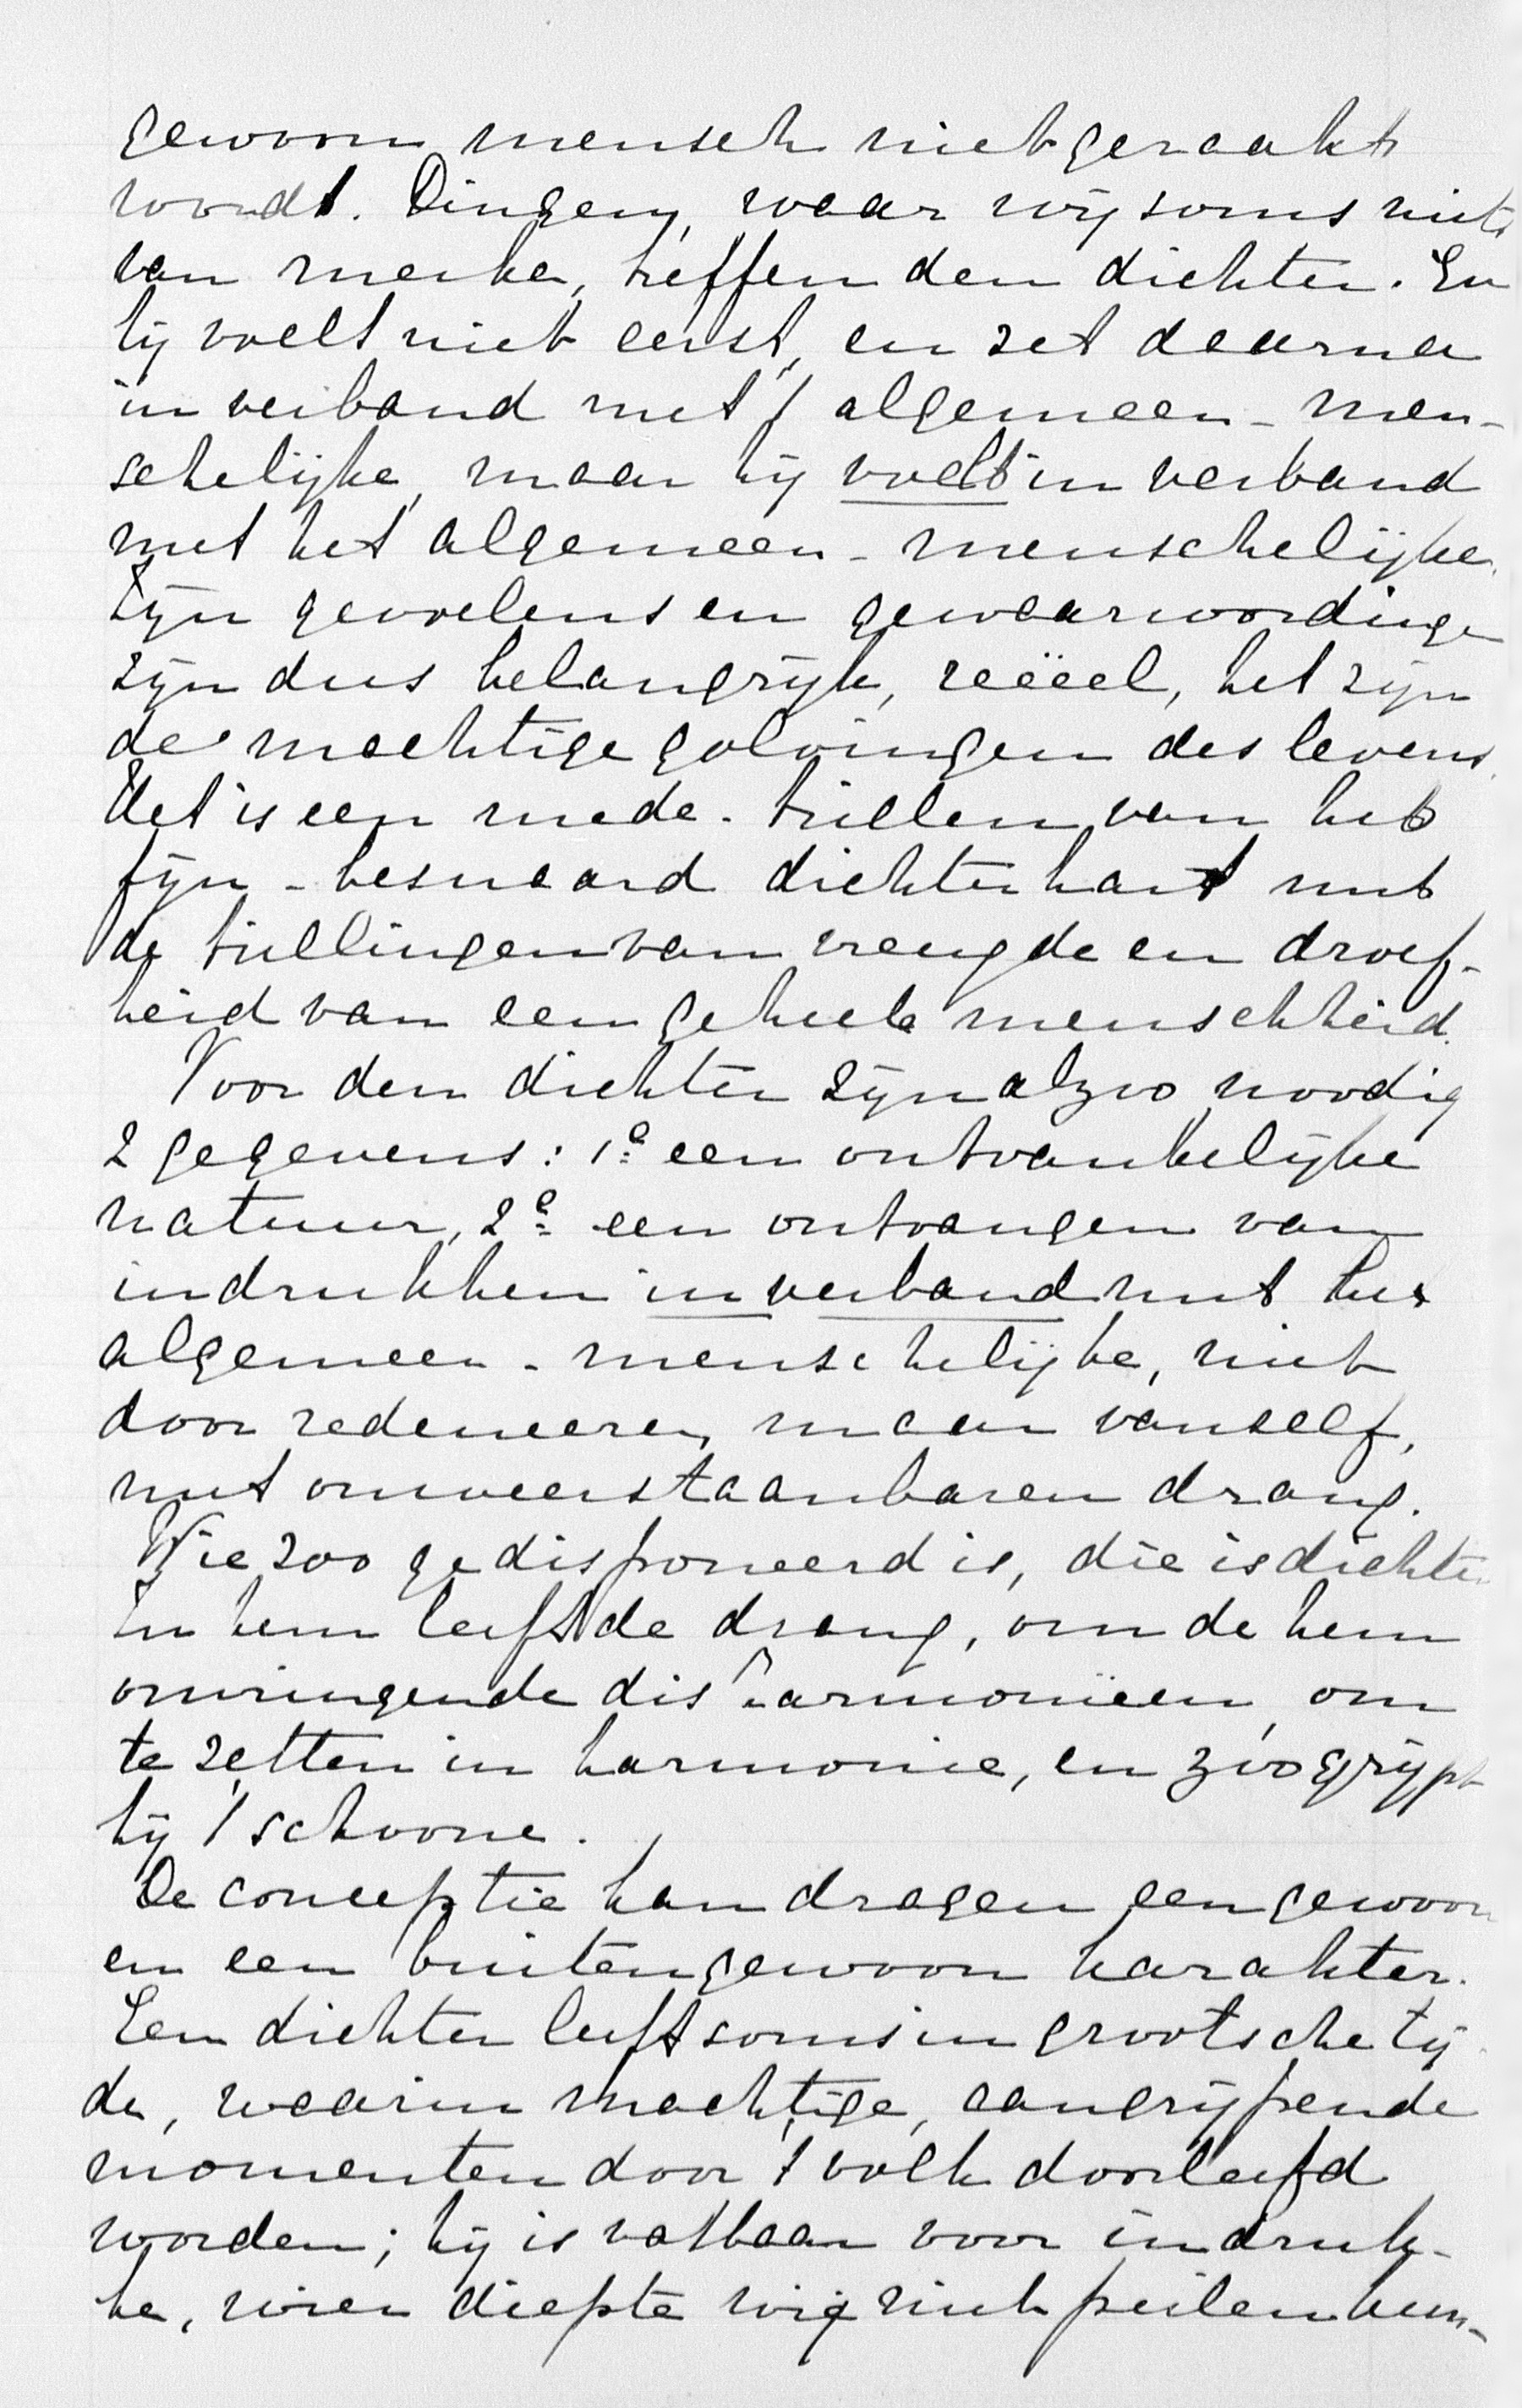 gewoon mensch niet geraakt
wordt. Dingen, waar wij soms niets
van merken, treffen den dichter. En
hij voelt niet eerst, en zet daarna
in verband met 't algemeen-men-
schelijke, maar hij voelt in verband
met het algemeen-menschelijke.
Zijn gevoelens en gewaarwordingen
zijn dus belangrijk, reëeel, het zijn
de machtige golvingen des levens.
Het is een mede-trillen van het
fijn-besnaard dichterhart met
de trillingen van vreugde en droef-
heid van een geheele menschheid.
Voor den dichter zijn alzoo noodig
2 gegevens: 1e een ontvankelijke
natuur, 2e een ontvangen van
indrukken in verband met het
algemeen-menschelijke, niet
door redeneeren, maar vanself,
met onweerstaanbaren drang.
Wie zoo gedisponeerd is, die is dichter.
In hem leeft de drang, om de hem
omringende disharmonieën, om
te zetten in harmonie, en zoo grijpt
hij 't schoone.
De conceptie kan dragen een gewoon
en een buitengewoon karakter.
Een dichter leeft soms in grootsche tij-
den, waarin machtige, aangrijpende
momenten door 't volk doorleefd
worden; hij is vatbaar voor indruk-
ken, wier diepte wij niet peilen kun-